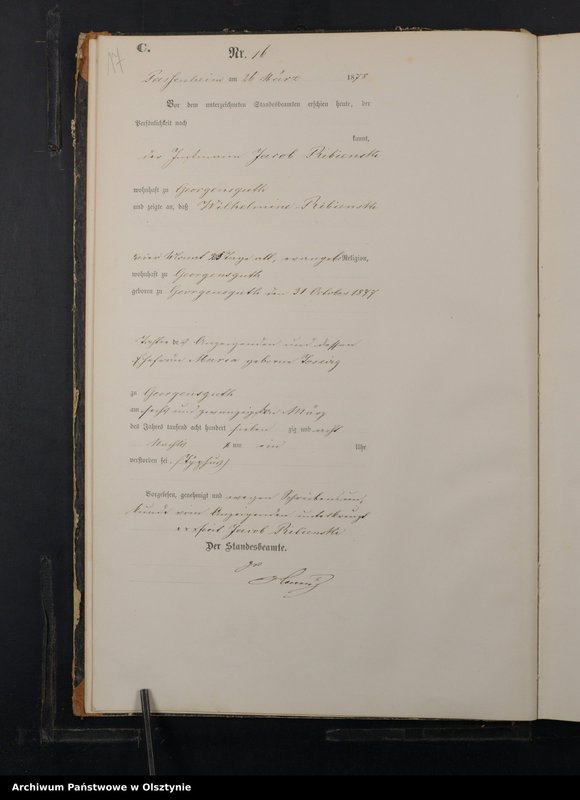 C.
17
Nr. 16
Passenheim am 26 März 1878
Vor dem unterzeichneten Standesbeamten erschien heute, der
Persönlichkeit nach
kannt,
der Instmann Jacob Ribienski
wohnhaft zu Georgensguth
und zeigte an, daß Wilhelmine Ribienski
vier Monat 25 Tage alt, evangel. Religion,
wohnhaft zu Georgensguth
geboren zu Georgensguth den 31 October 1877
Tochter des Anzeigenden und dessen
Ehefrau Maria geborne
zu Georgensguth
am sechs und zwanzigsten März
des Jahres tausend acht hundert sieben zig und acht
Nachts um ein Uhr
verstorben sei. (Typhus)
Vorgelesen, genehmigt und wegen Schreibensun-
kunde vom Anzeigenden unterkreuzt
xxx Jacob Ribienski
Der Standesbeamte.
Archiwum Państwowe w Olsztynie